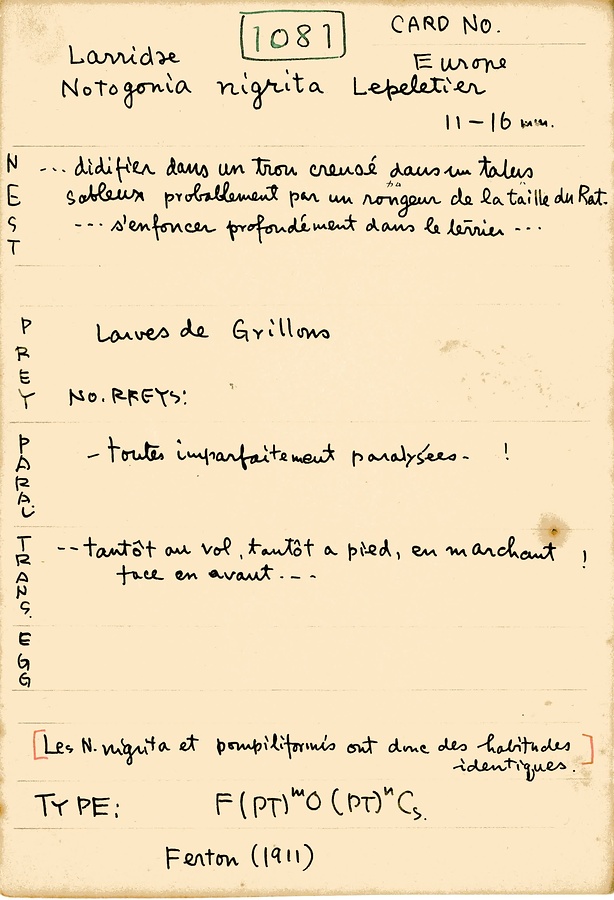 1081
CARD NO.
Larridae
Europe
Notogonia nigrita Lepeletier
11-16 mm.
NEST
--- didifier dans un trou creusé dans un talus
sableux probablement par un rongeur de la taille du Rat.
--- s'enfoncer profondément dans le terrier ---
PREY
Larves de Grillons
NO. PREYS:
PARAL
- toutes imparfaitement paralysées- !
TRANS.
-- tantôt au vol, tantôt a pied, en marchant !
face en avant ---
EGG
[Les N. nigrita et pompiliformis ont donc des habitudes
identiques.]
TYPE: F(PT)ᵐO(PT)ⁿCs.
Ferton (1911)